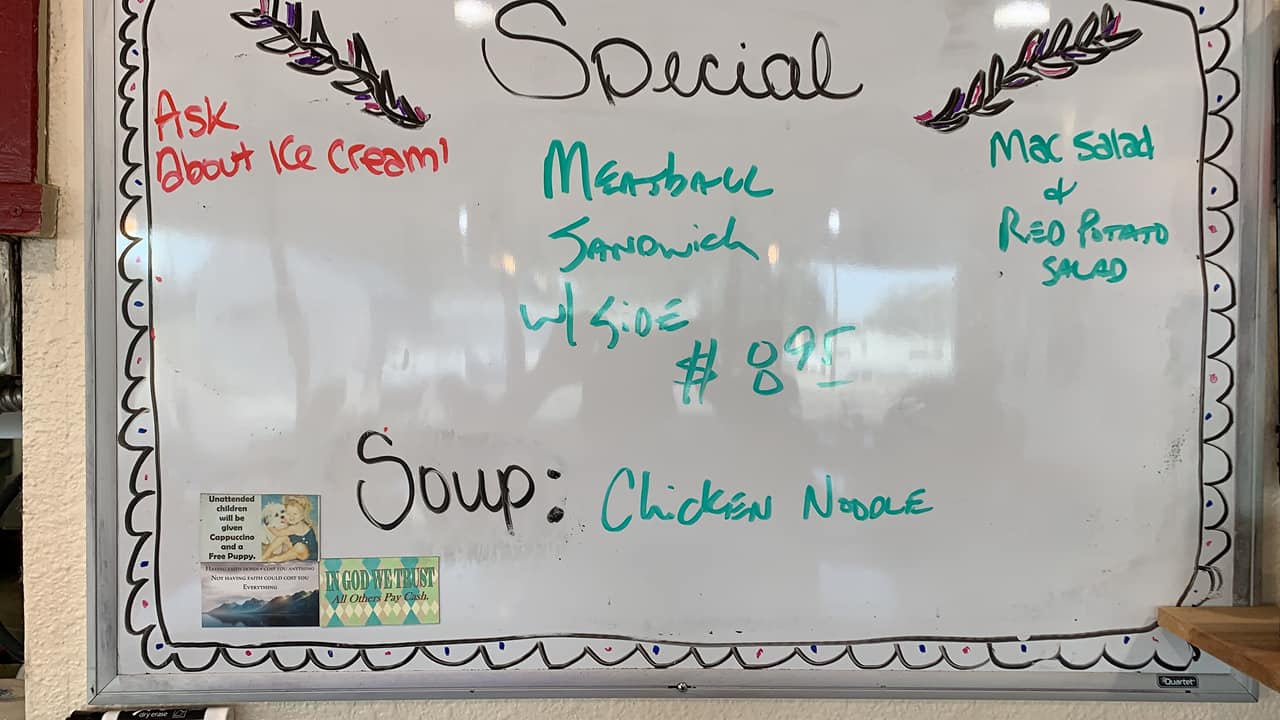 Special
Ask
About Ice Cream!
Meatball
Sandwich
w/ Side
$ 8 95
Mac Salad
&
Red Potato
Salad
Soup: Chicken Noodle
Unattended
children
will be
given
Cappuccino
and a
Free Puppy.
Having faith doesn't cost you anything
Not having faith could cost you
Everything
IN GOD WE TRUST
All Others Pay Cash.
Quartet
dry erase